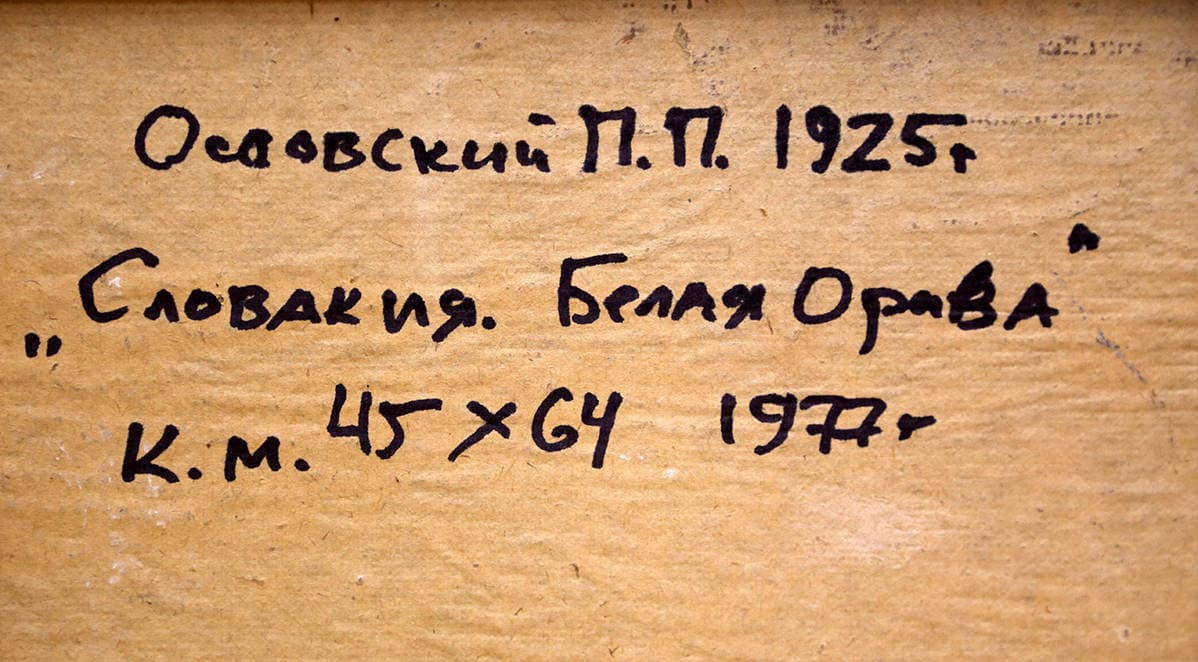 Оссовский П.П. 1925г
„Словакия. Белая Орава"
К.м. 45×64 1977г